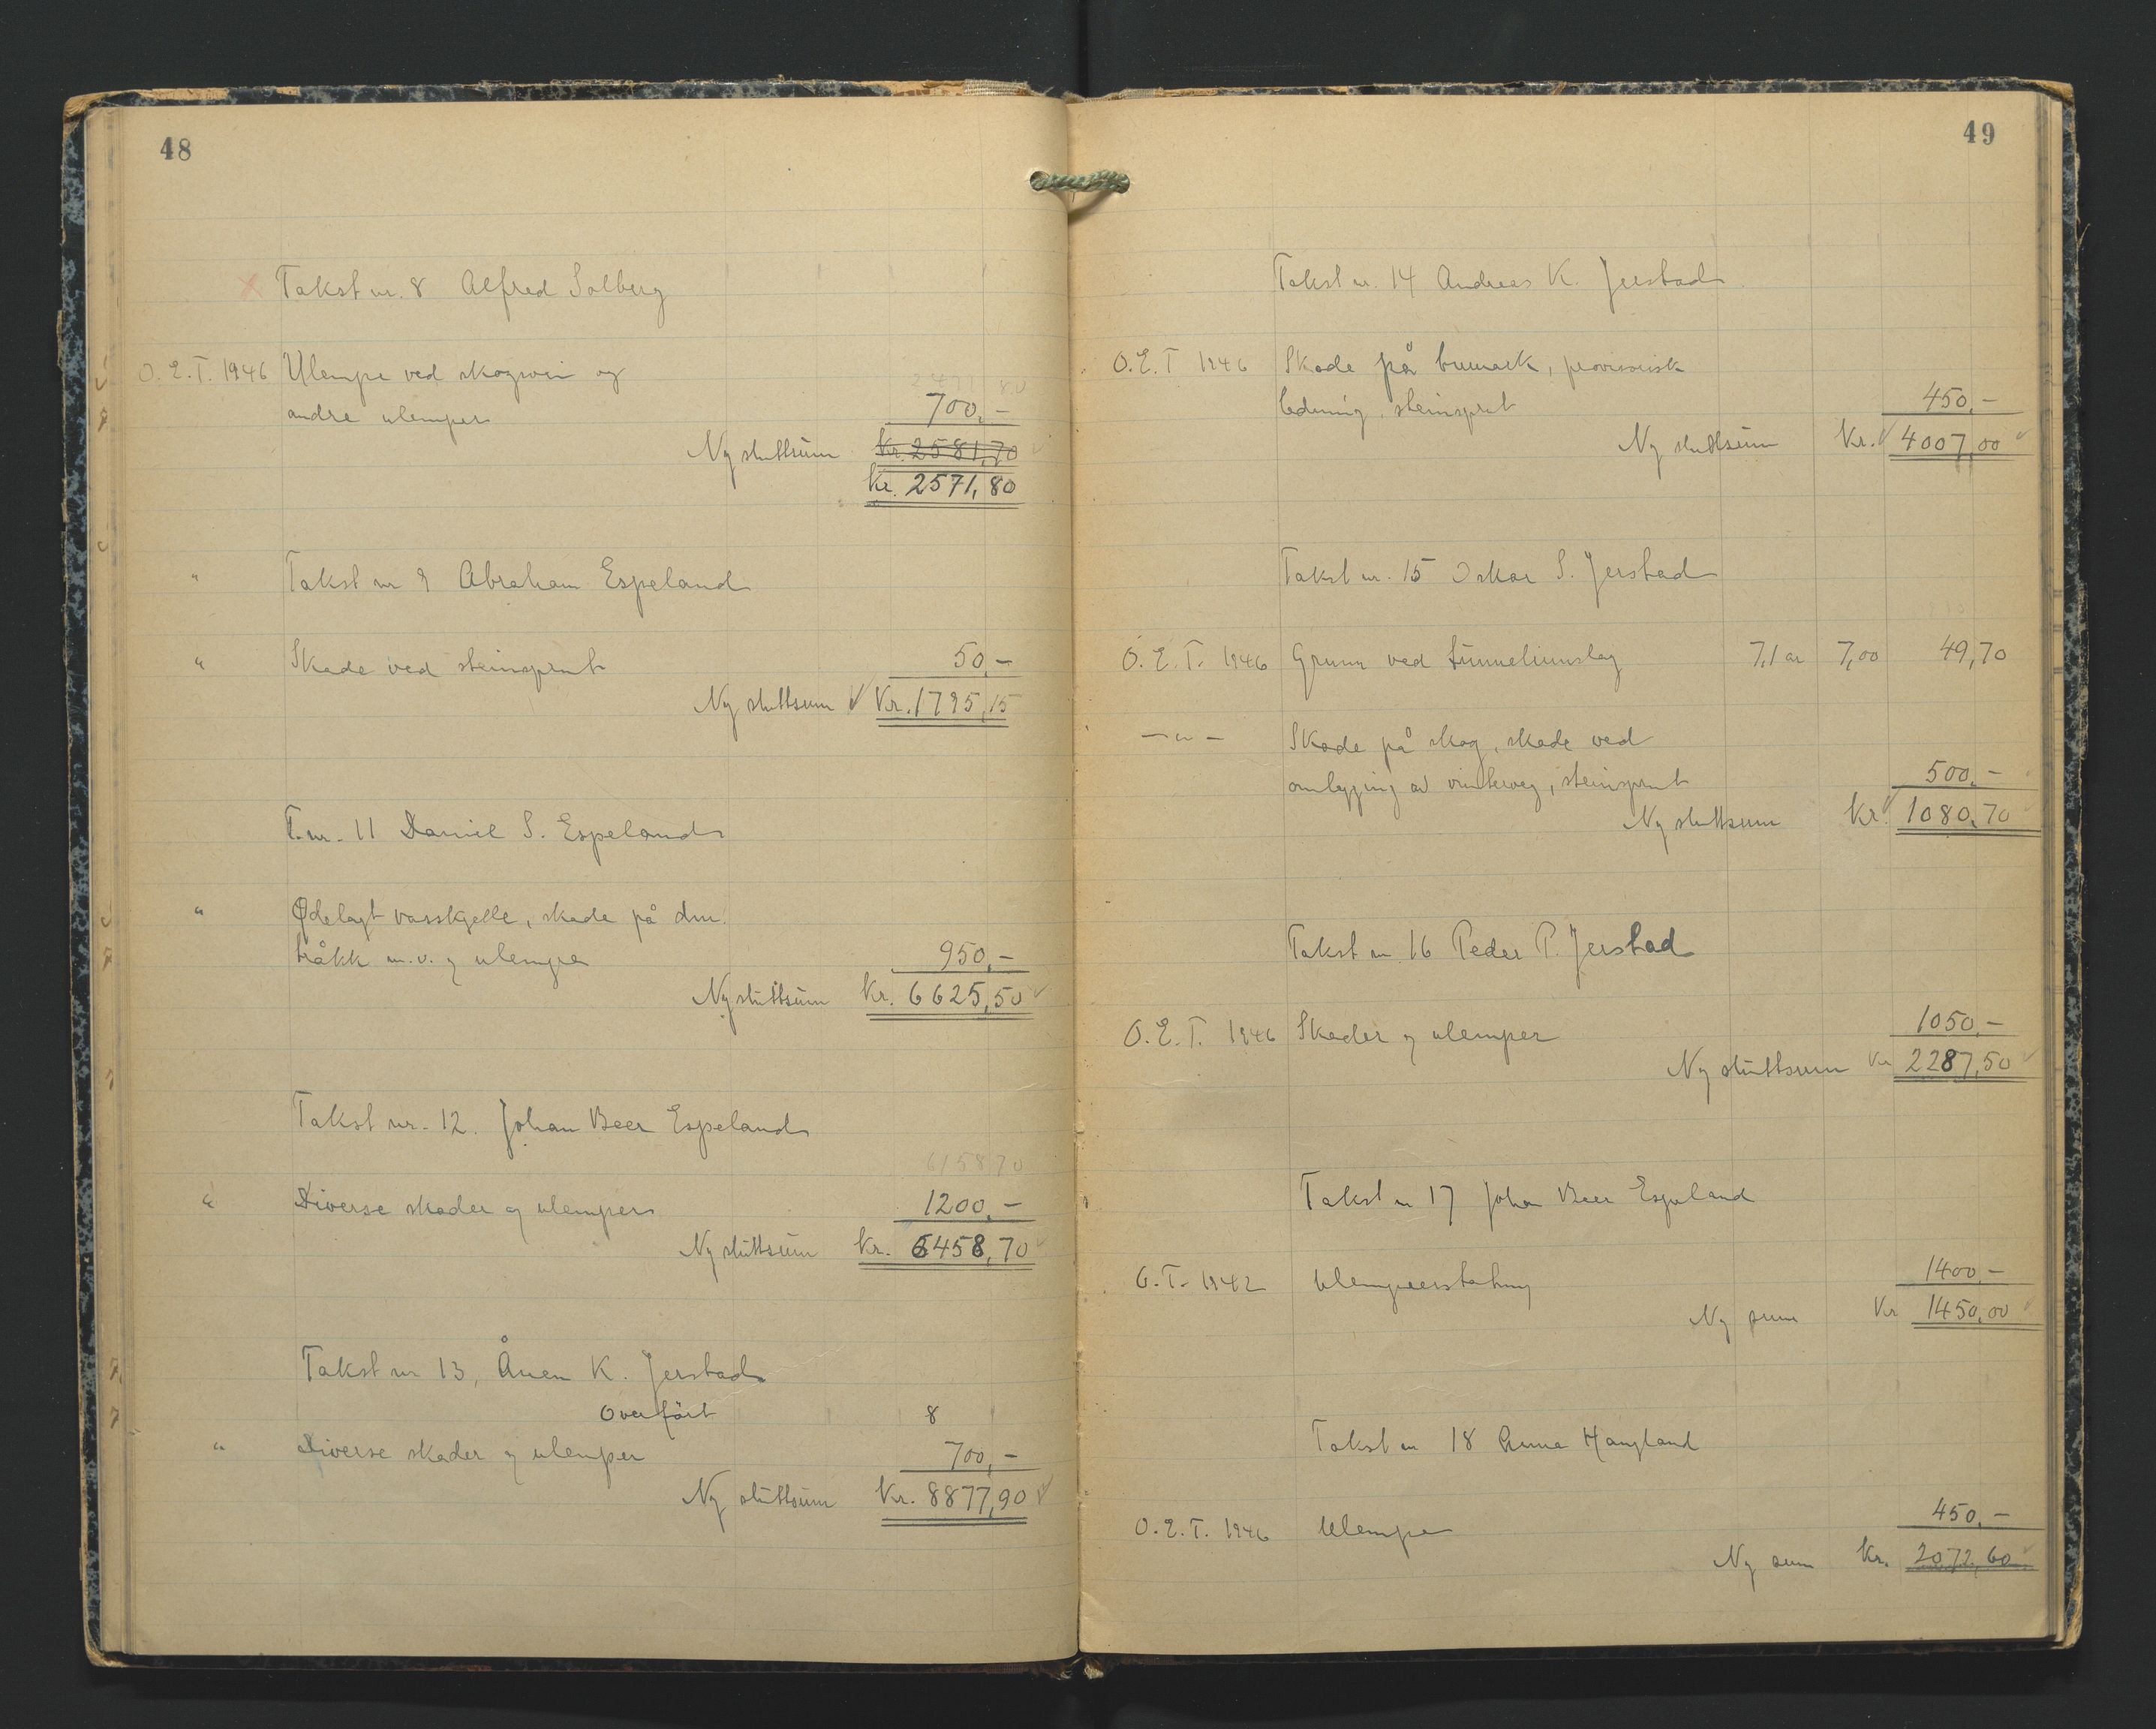 48
Takst nr. 8 Alfred Solberg
O.E.T. 1946 Ulempe ved skogsvei og
andre ulemper 700,-
Ny sluttsum Kr. 2581,70
Kr. 2571,80
" Takst nr 9 Abraham Espeland
" Skade ved steinsprut 50,-
Ny sluttsum Kr. 1795,15
T. nr. 11 Daniel S. Espeland
" Ødelagt vasskjelle, skade på
tråkk m.v. og ulemper 950,-
Ny sluttsum Kr. 6625,50
Takst nr. 12. Johan Beer Espeland
6158,70
" Diverse skader og ulemper 1200,-
Ny sluttsum Kr. 6458,70
Takst nr 13, Ånen K. Jerstad
Overført 8
" Diverse skader og ulemper 700,-
Ny sluttsum Kr. 8877,90
49
Takst nr. 14 Andreas K. Jerstad
O.E.T 1946 Skade på bumark, provisorisk
ledning, steinsprut 450,-
Ny sluttsum Kr. 4007,00
Takst nr. 15 Oskar S. Jerstad
O.E.T. 1946 Grunn ved tunnelinnslag 7,1 ar 7,00 49,70
-"- Skade på skog, skade ved
omlegging av vinterveg, steinsprut 500,-
Ny sluttsum Kr. 1080,70
Takst nr 16 Peder P. Jerstad
O.E.T. 1946 Skader og ulemper 1050,-
Ny sluttsum Kr 2287,50
Takst nr 17 Johan Beer Espeland
O.T. 1942 Ulempeerstatning 1400,-
Ny sum Kr 1450,00
Takst nr 18 Anna Haugland
O.E.T. 1946 Ulemper 450,-
Ny sum Kr. 2072,60